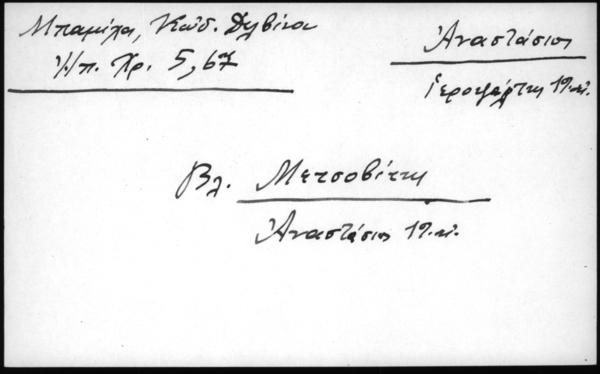 Μπαμίχα, Κώδ. Δελβίνου
Ἠπ. Χρ. 5, 67
Ἀναστάσιος
Ἱεροψάλτης 19.αἰ.
Βλ. Μετσοβίτης
Ἀναστάσιος 19.αἰ.